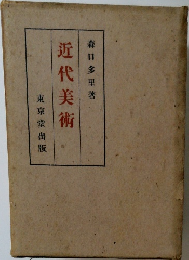 森口多里著
近代美術
東京堂出版